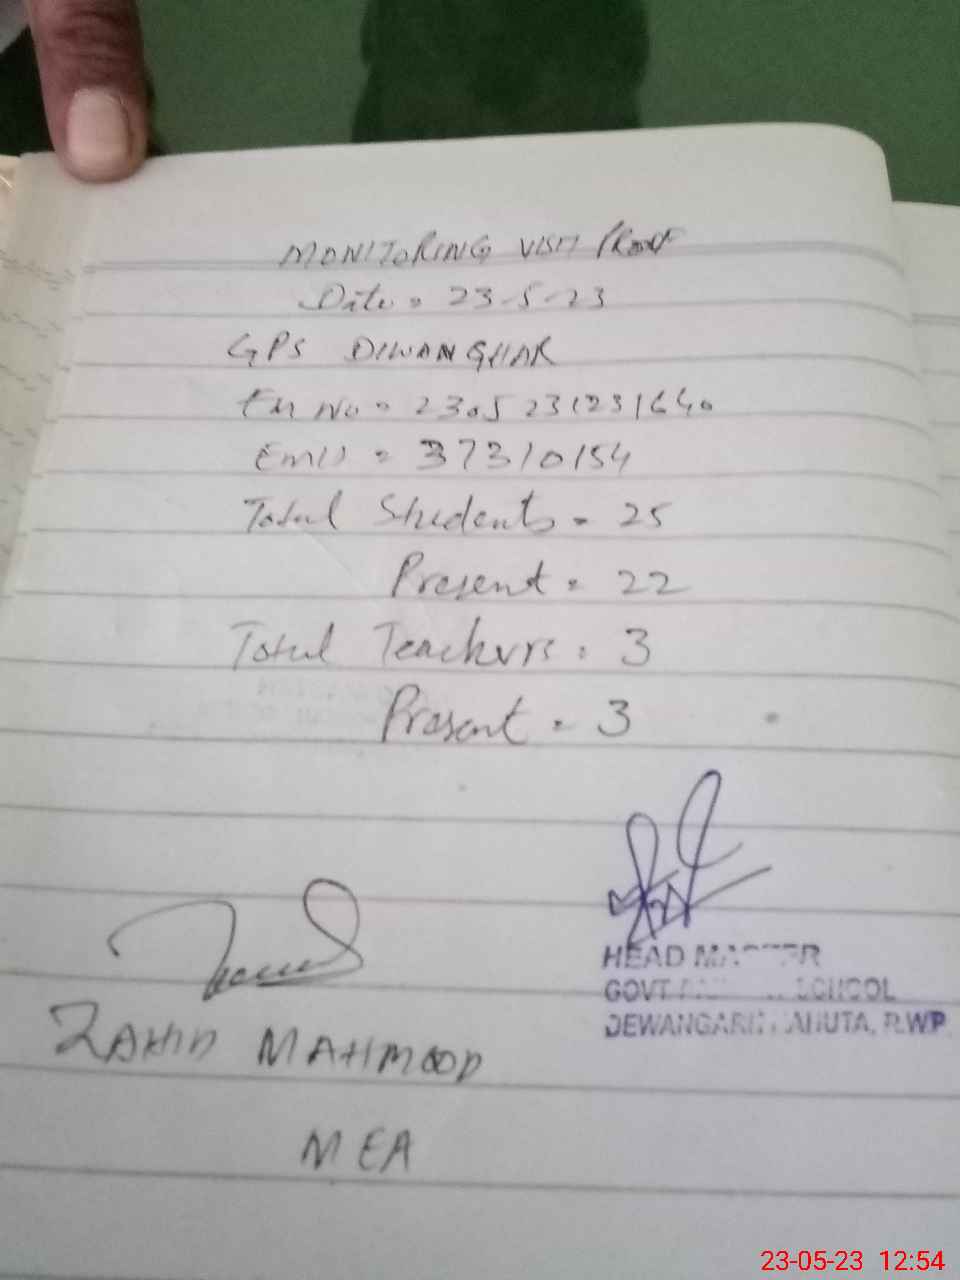 MONITORING VISIT PROOF
Date = 23-5-23
GPS DIWANGHAR
EM No = 2305231231640
EMIS = 37310154
Total Students = 25
Present = 22
Total Teachers = 3
Present = 3
HEAD MASTER
GOVT SCHOOL
RWP
ZAHID MAHMOOD
MEA
23-05-23 12:54